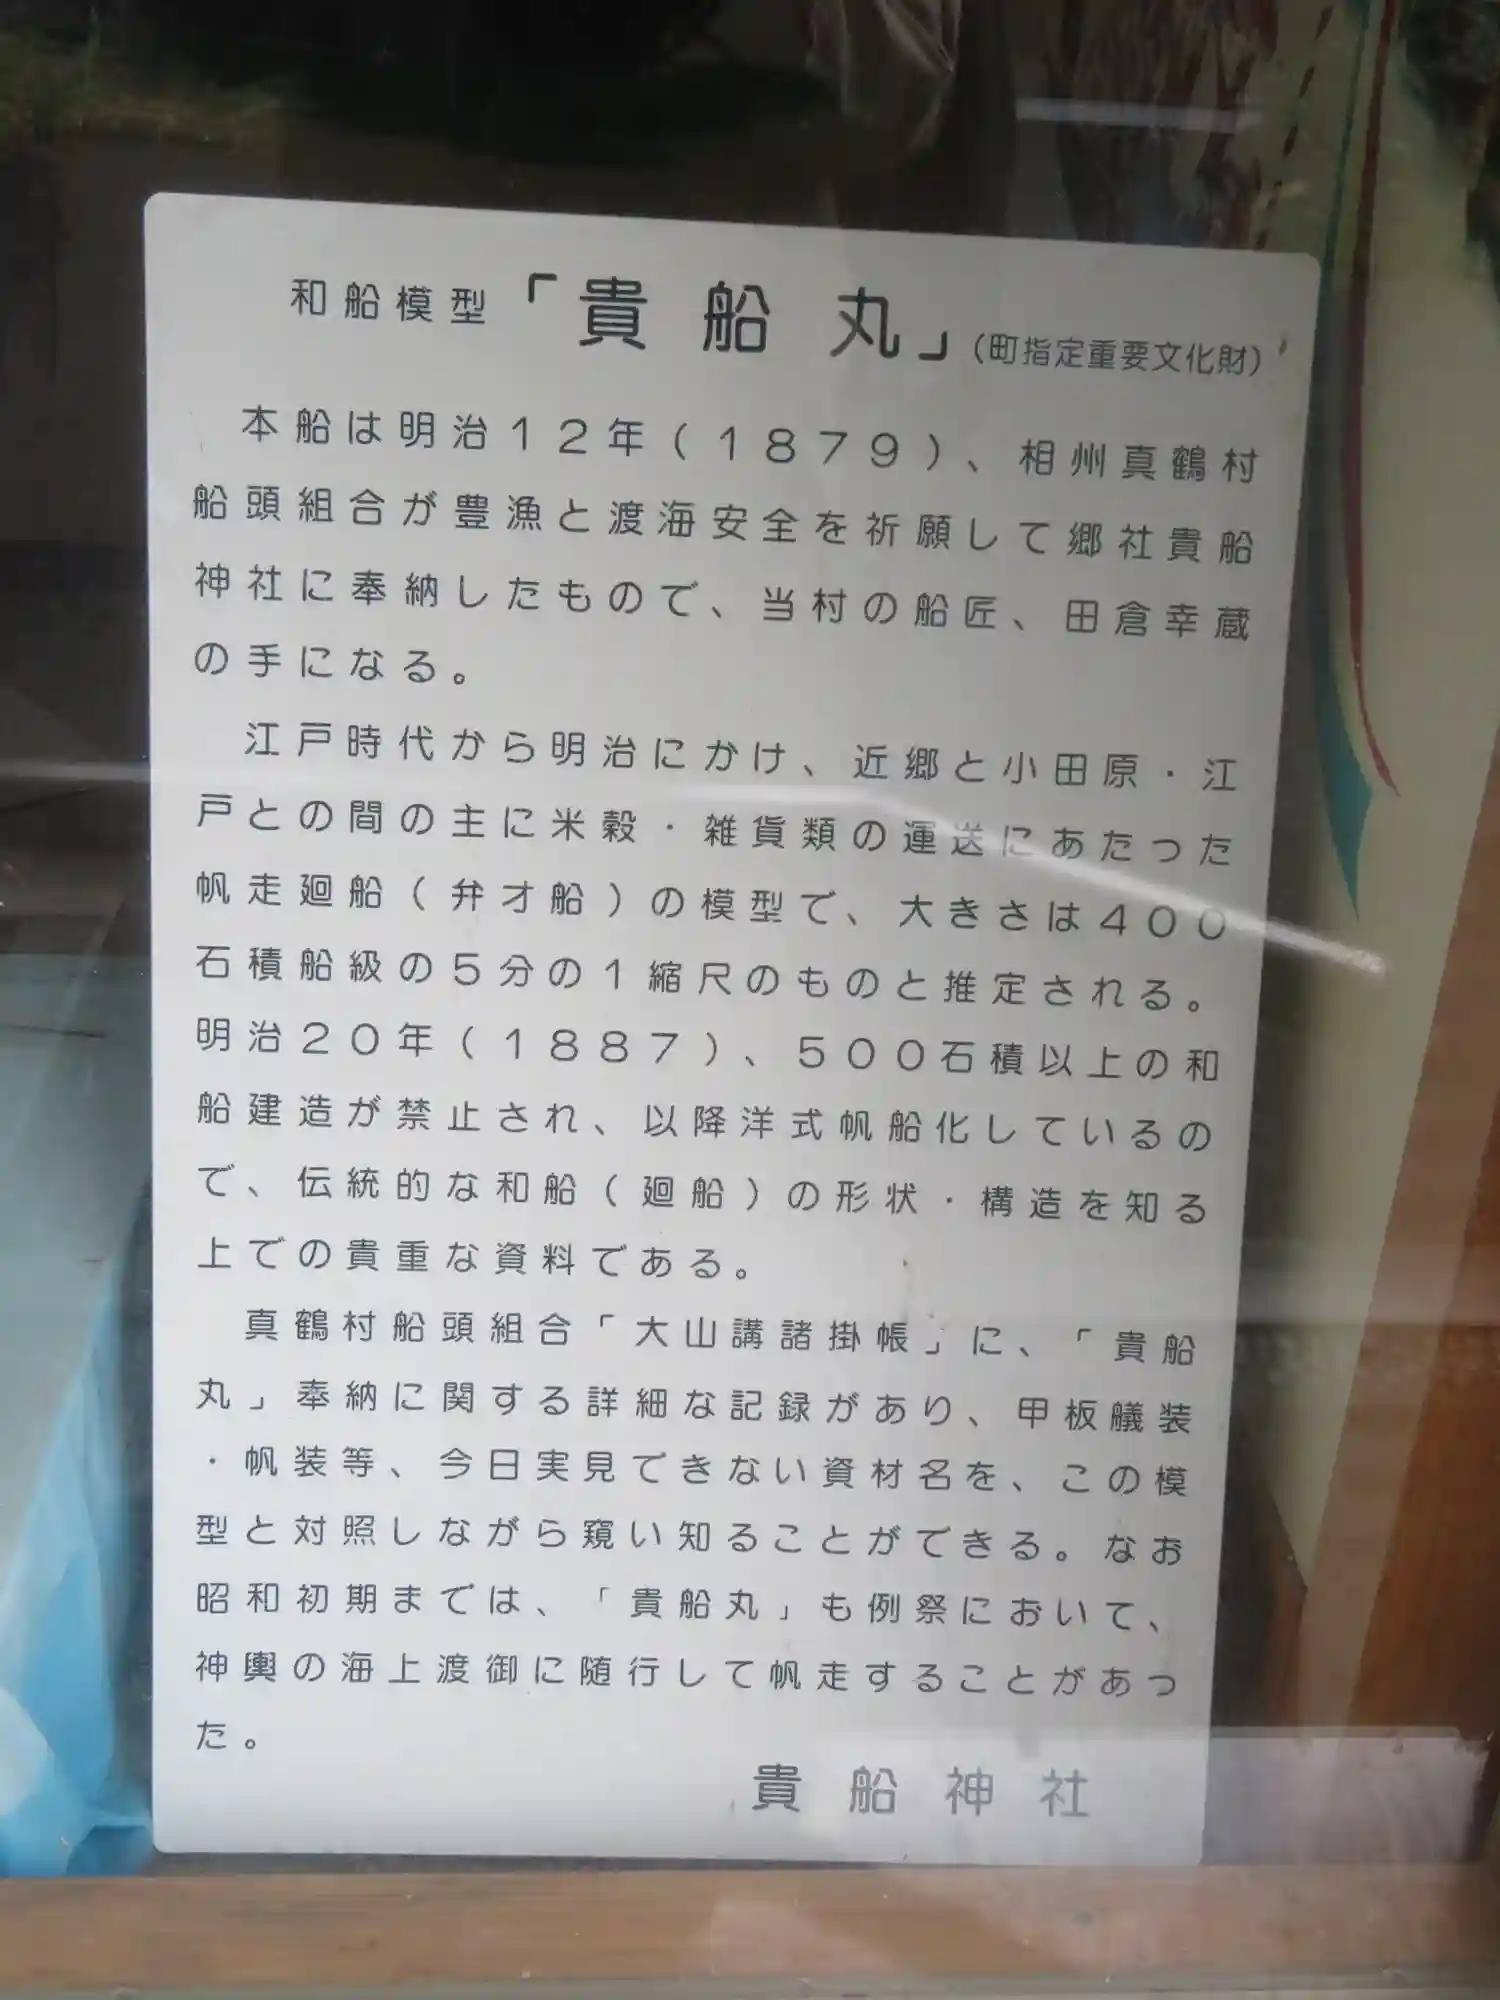 和船模型「貴船丸」(町指定重要文化財)
本船は明治12年(1879)、相州真鶴村
船頭組合が豊漁と渡海安全を祈願して郷社貴船
神社に奉納したもので、当村の船匠、田倉幸蔵
の手になる。
江戸時代から明治にかけ、近郷と小田原・江
戸との間の主に米穀・雑貨類の運送にあたった
帆走廻船(弁才船)の模型で、大きさは400
石積船級の5分の1縮尺のものと推定される。
明治20年(1887)、500石積以上の和
船建造が禁止され、以降洋式帆船化しているの
で、伝統的な和船(廻船)の形状・構造を知る
上での貴重な資料である。
真鶴村船頭組合「大山講諸掛帳」に、「貴船
丸」奉納に関する詳細な記録があり、甲板艤装
・帆装等、今日実見できない資材名を、この模
型と対照しながら窺い知ることができる。なお
昭和初期までは、「貴船丸」も例祭において、
神輿の海上渡御に随行して帆走することがあっ
た。
貴船神社